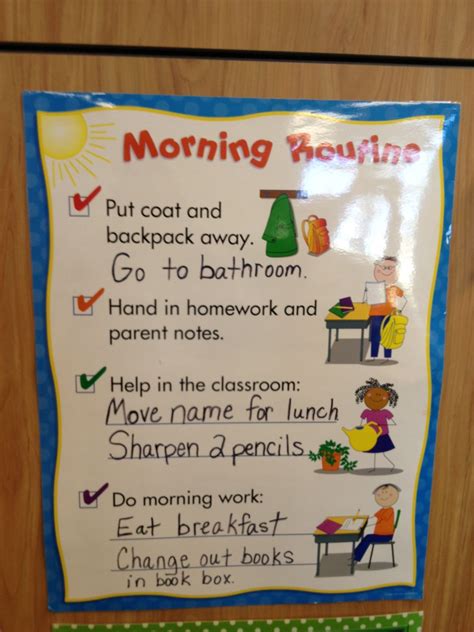 Morning Routine
Put coat and
backpack away.
Go to bathroom.
Hand in homework and
parent notes.
Help in the classroom:
Move name for lunch
Sharpen 2 pencils
Do morning work:
Eat breakfast
Change out books
in book box.